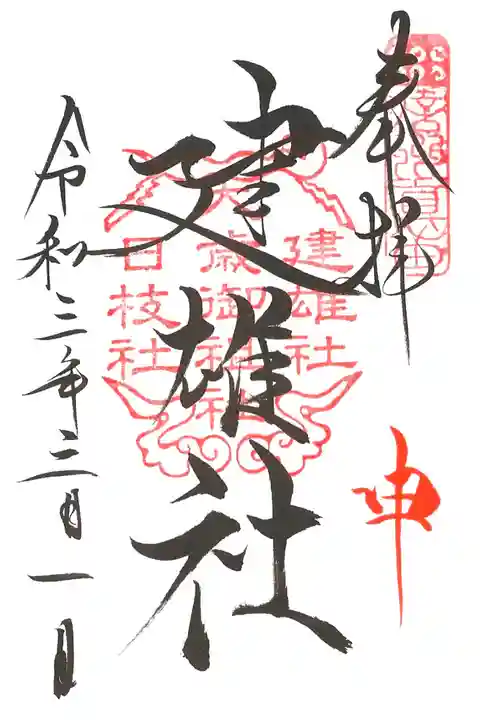 奉拝
申
建雄社
建雄社
歳御祖社
日枝社
令和三年三月一日